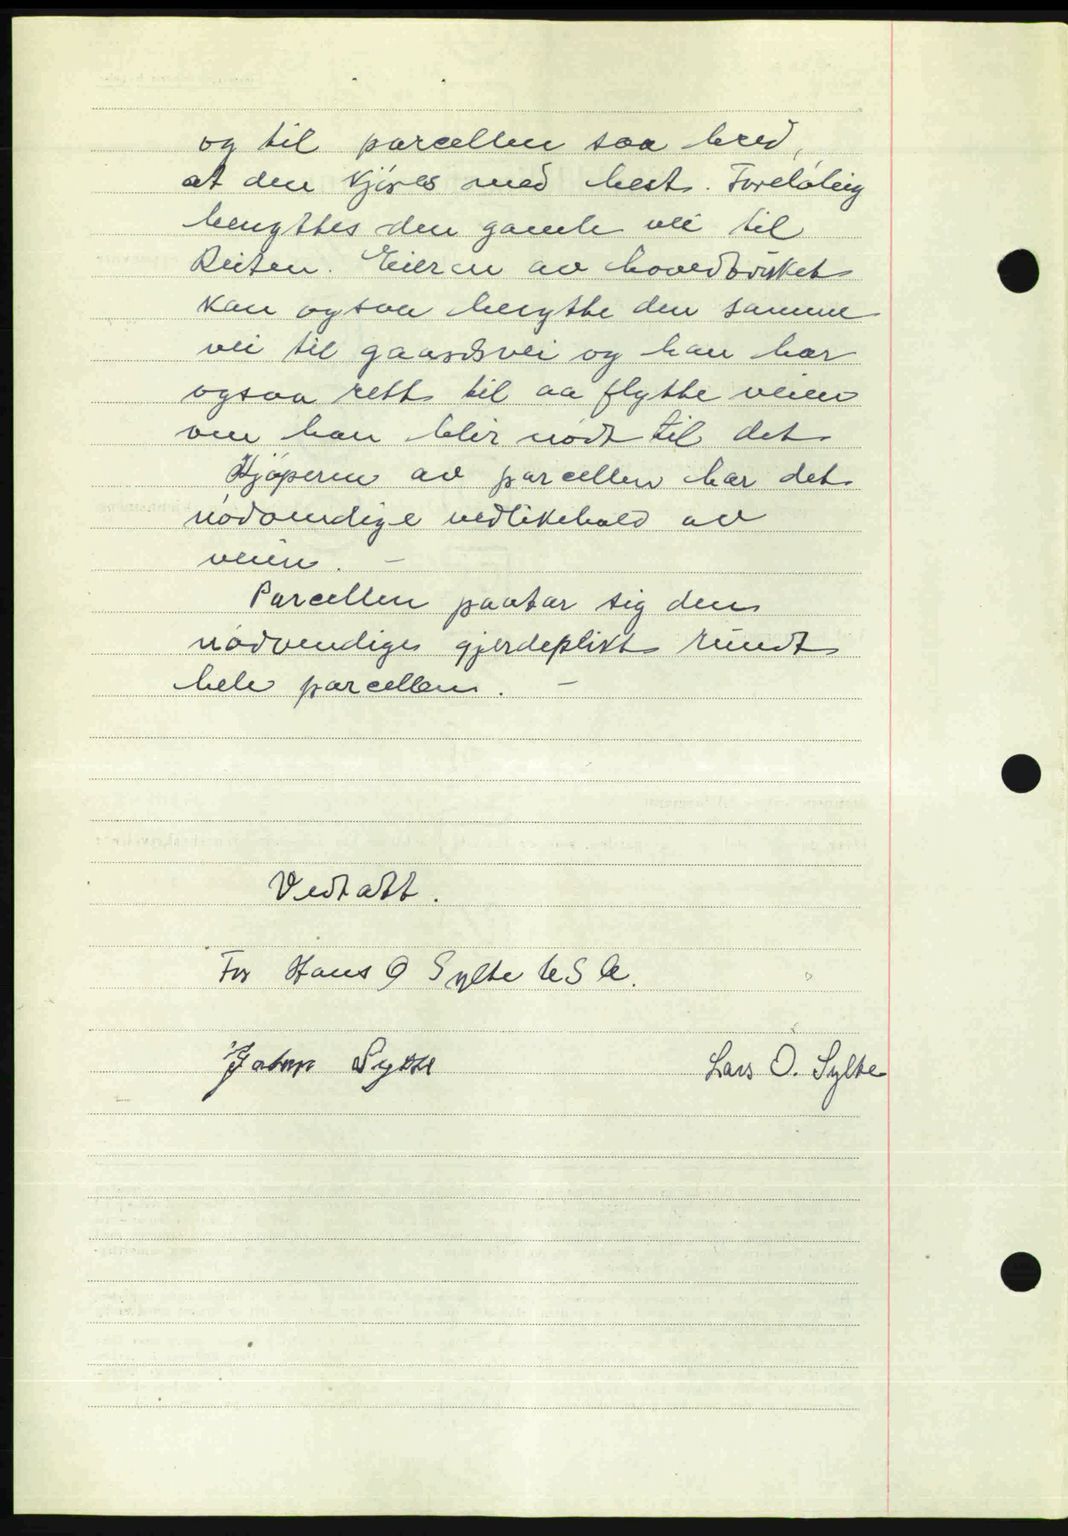 og til parcellen saa bred,
at den kjöres med hest. Foreløbig
benyttes den gamle vei til
Reiten. Eieren av hovedbruket
kan ogsaa benytte den samme
vei til gaardsvei og han har
ogsaa rett til aa flytte veien
om han blir nödt til det
Kjöperen av parcellen har det
nödvendige vedlikehold av
veien. –
Parcellen paatar sig den
nödvendige gjerdeplikt rundt
hele parcellen. –
Vedtatt.
For Hans O Sylte
Johan Sylte Lars O. Sylte